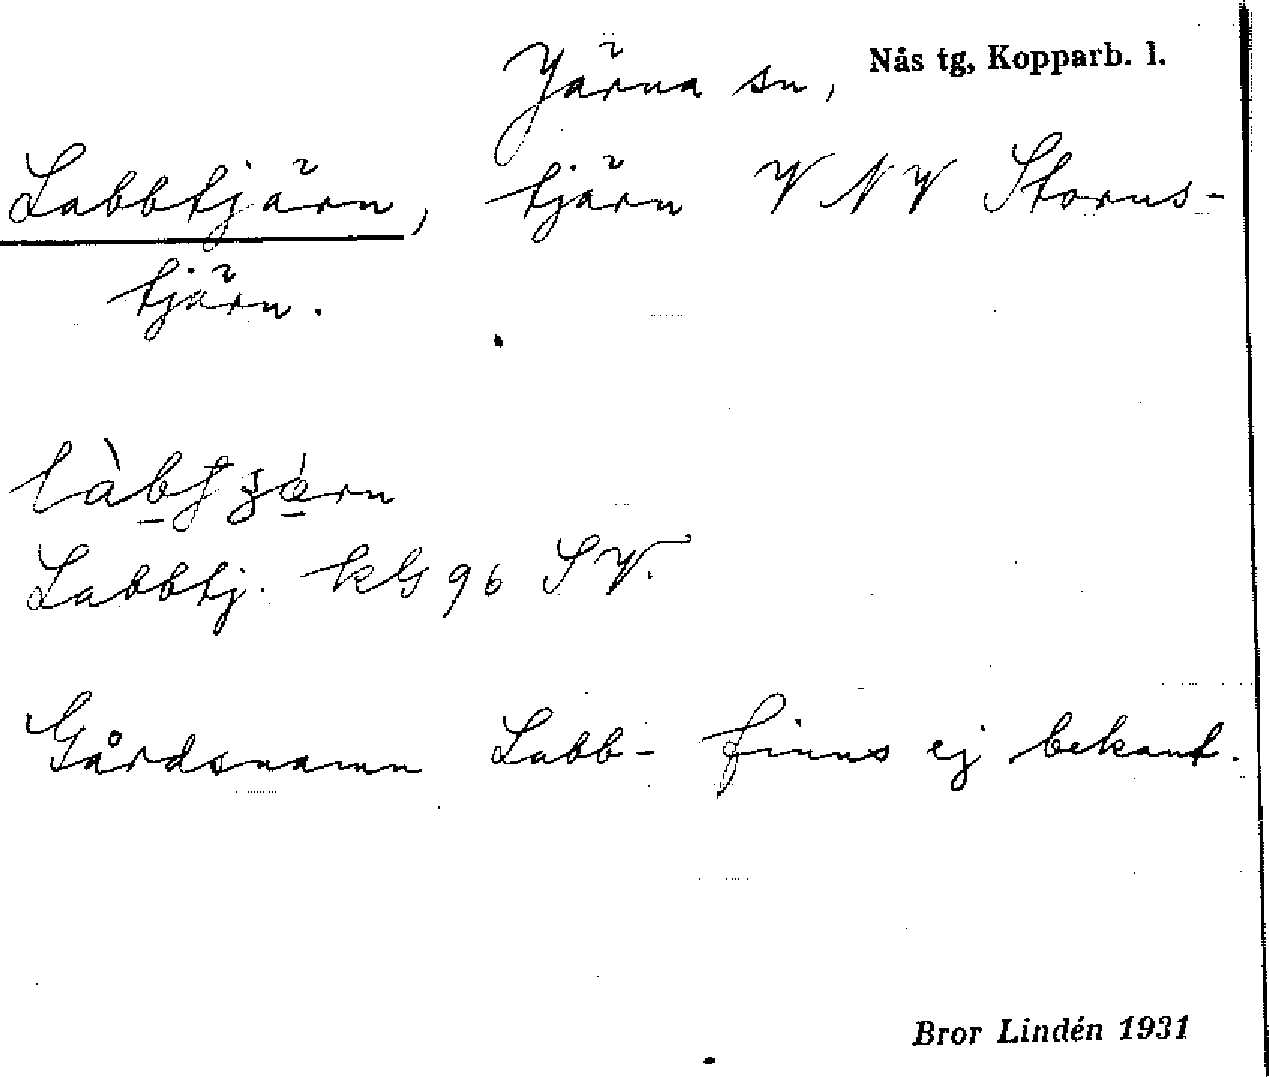 Järna sn, Nås tg, Kopparb. l.
Labbtjärn, tjärn VNV Storns-
tjärn.
Labbtj. kG 96 SV.
Gårdsnamn Labb- finns ej bekant.
Bror Lindén 1931